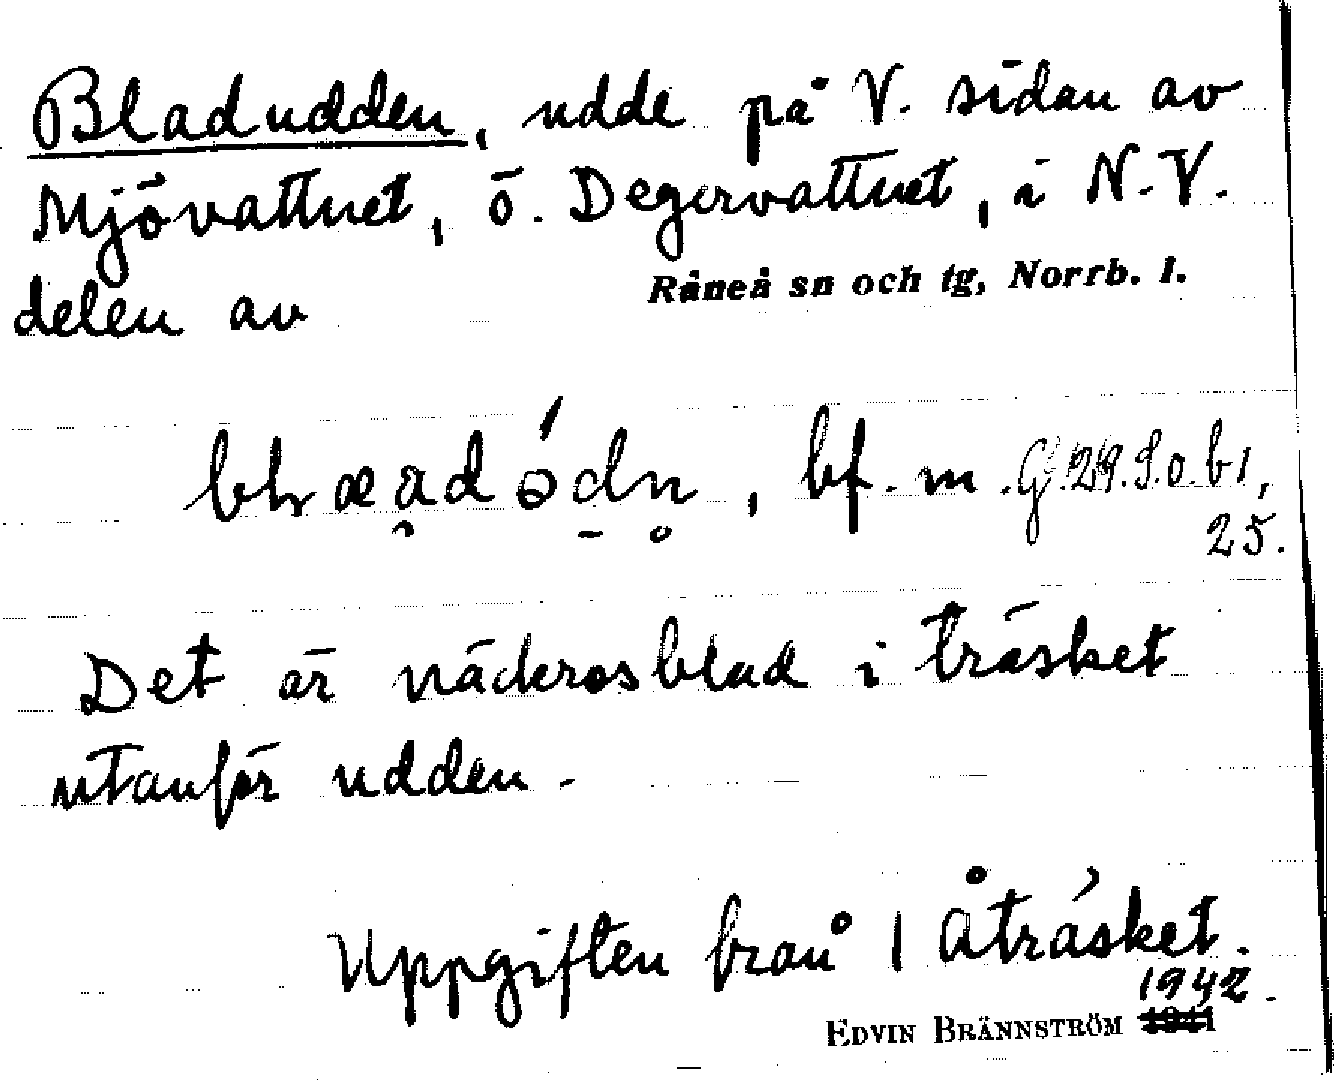 Bladudden, udde på V. sidan av
Mjövattnet, ö. Degervattnet, i N.V.
delen av Råneå sn och tg, Norrb. l.
bf. m.
25.
Det är näckrosblad i träsket
utanför udden.
Uppgiften från 1 Åträsket.
1942.
EDVIN BRÄNNSTRÖM 1941